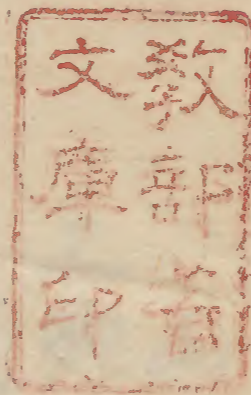 教部省
文庫印